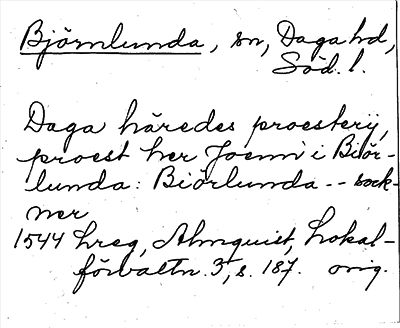 Björnlunda, sn, Daga hd,
Söd. l.
Daga häredes proesterij,
proest her Joenn i Biör-
lunda: Biörlunda -- sock-
ner
1544 hreg, Almquist, Lokal-
förvaltn. 3, s. 187. orig.